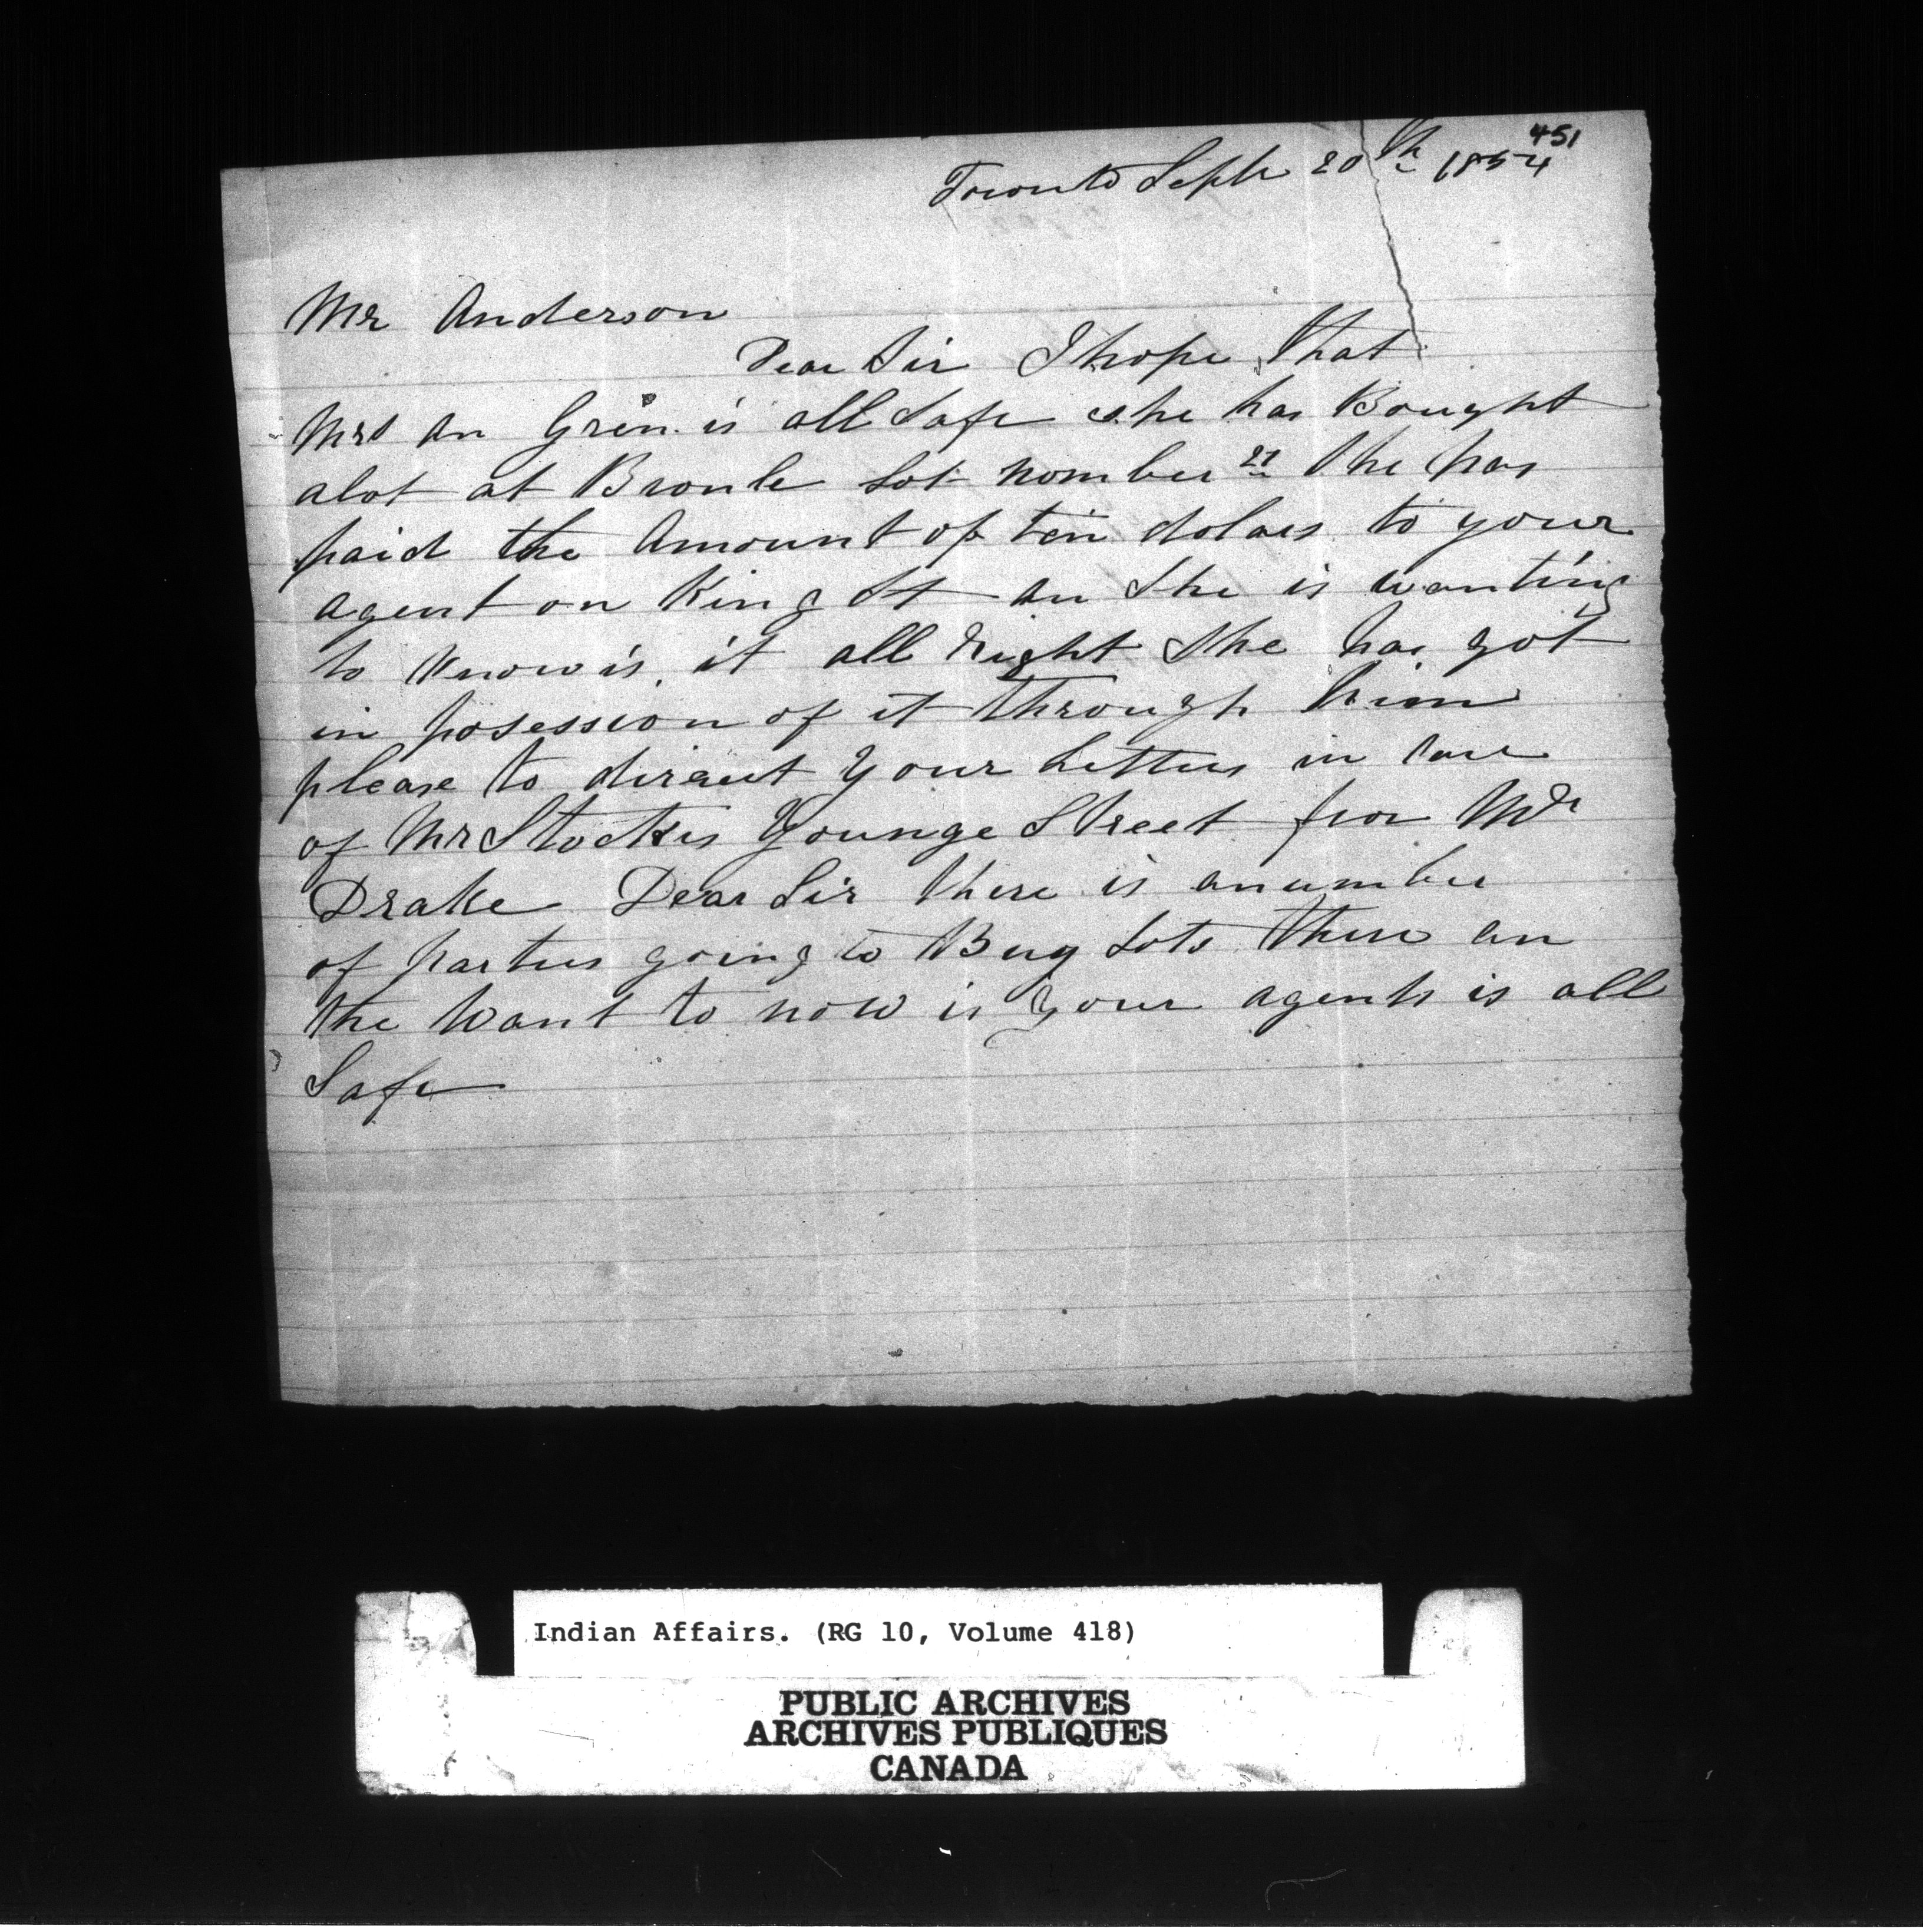 451
Toronto Septr 20th 1854
Mr Anderson
Dear Sir I hope that
Mrs An Grin is all Safe she has Bought
alot at Bronte Lot Nomber 21 She has
paid the Amount of ten dolars to your
agent on King St an She is wanting
to know is it all Right She has got
in posession of it through him
please to direct your Letters in care
of Mr Stockes Younge Street for Mr
Drake Dear Sir there is anumber
of parties going to Buy Lots there an
the Want to now is your agents is all
Safe
Indian Affairs. (RG 10, Volume 418)
PUBLIC ARCHIVES
ARCHIVES PUBLIQUES
CANADA